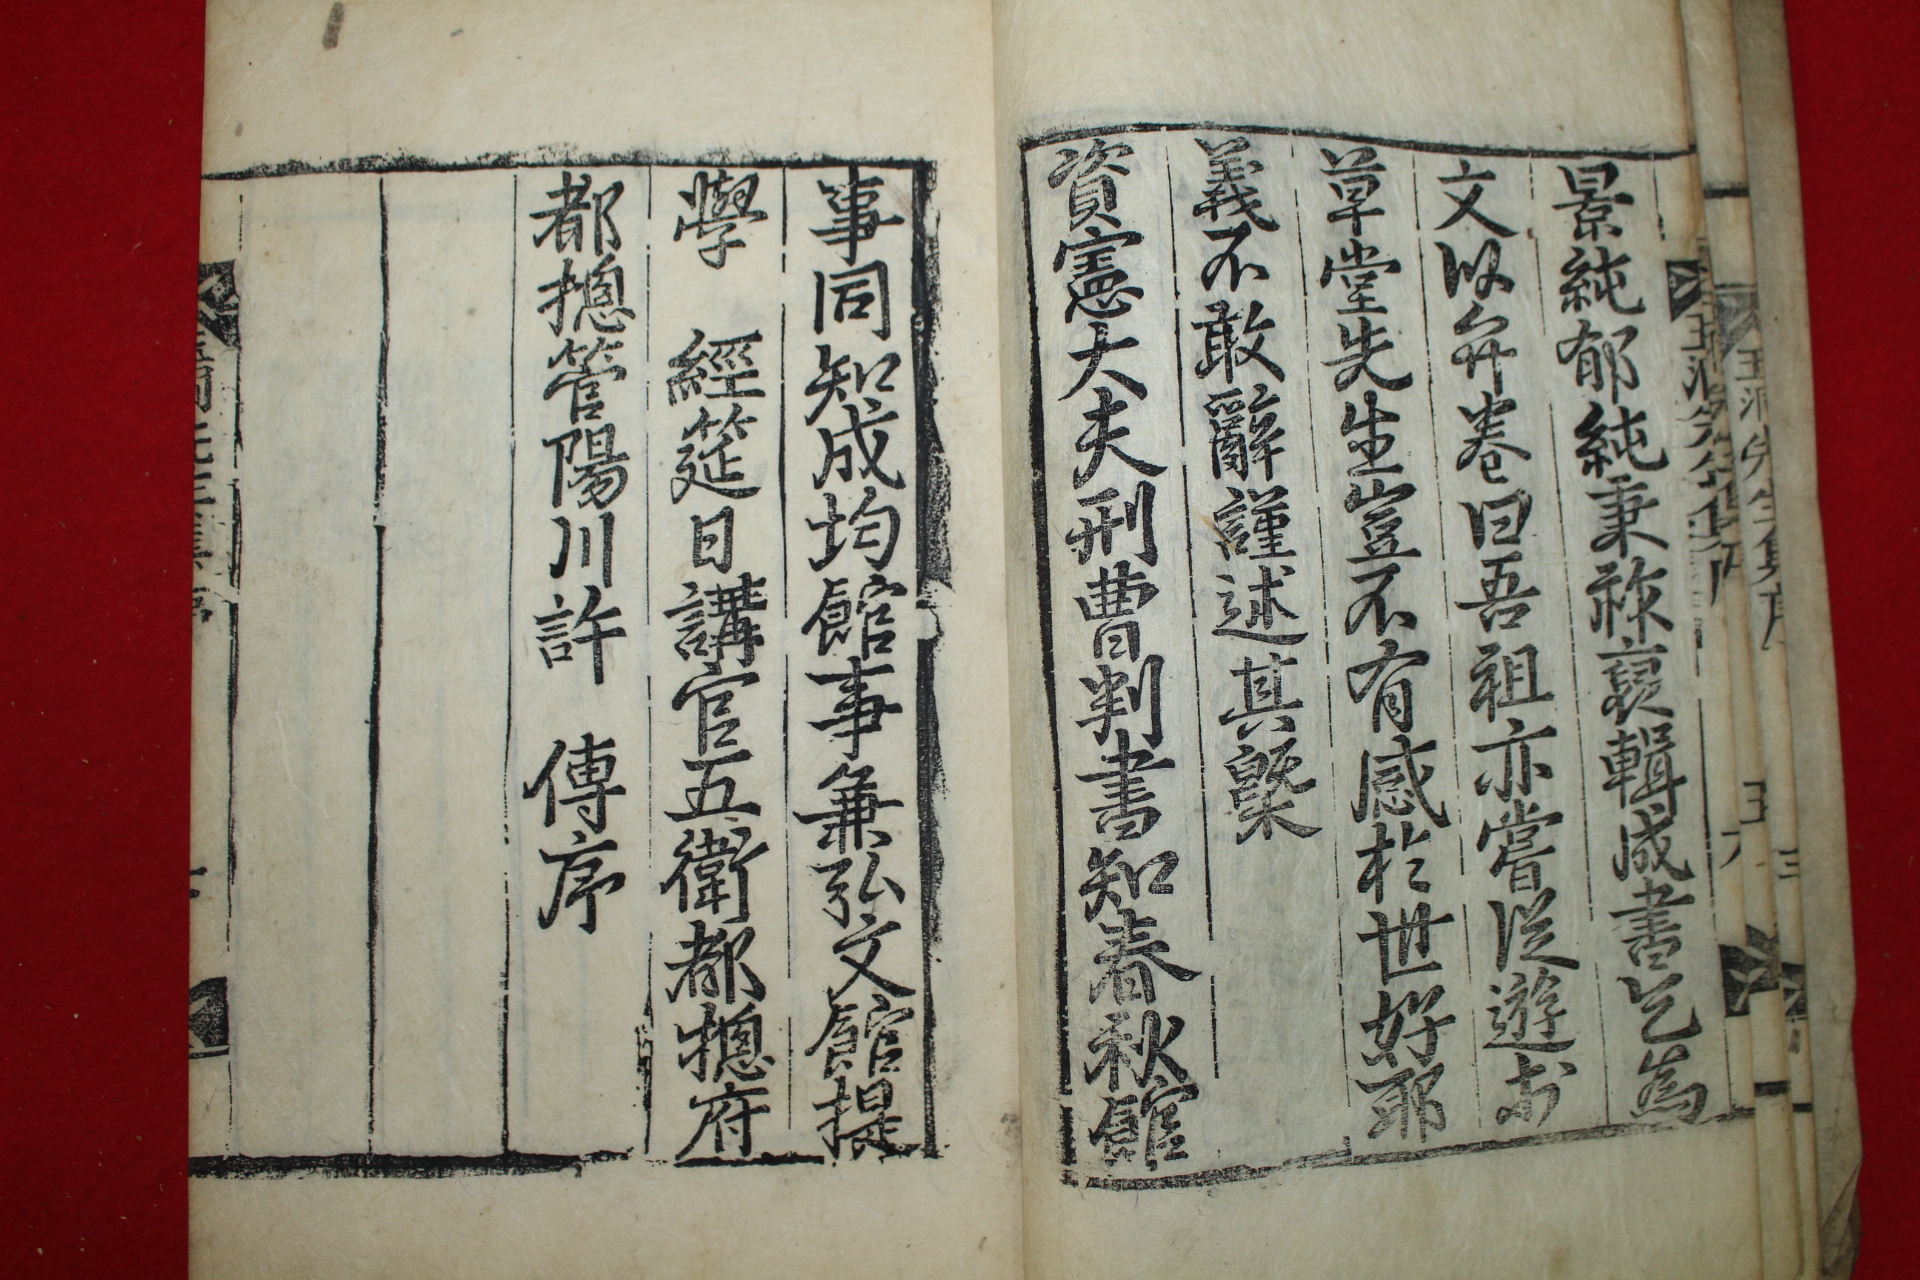 景純郁純秉祢裒輯成書乞為
文以弁卷曰吾祖亦嘗從遊於
草堂先生豈不有感於世好耶
義不敢辭謹述其槩
資憲大夫刑曹判書知春秋館
事同知成均館事兼弘文館提
學　經筵日講官五衛都摠府
都摠管陽川許　傳序